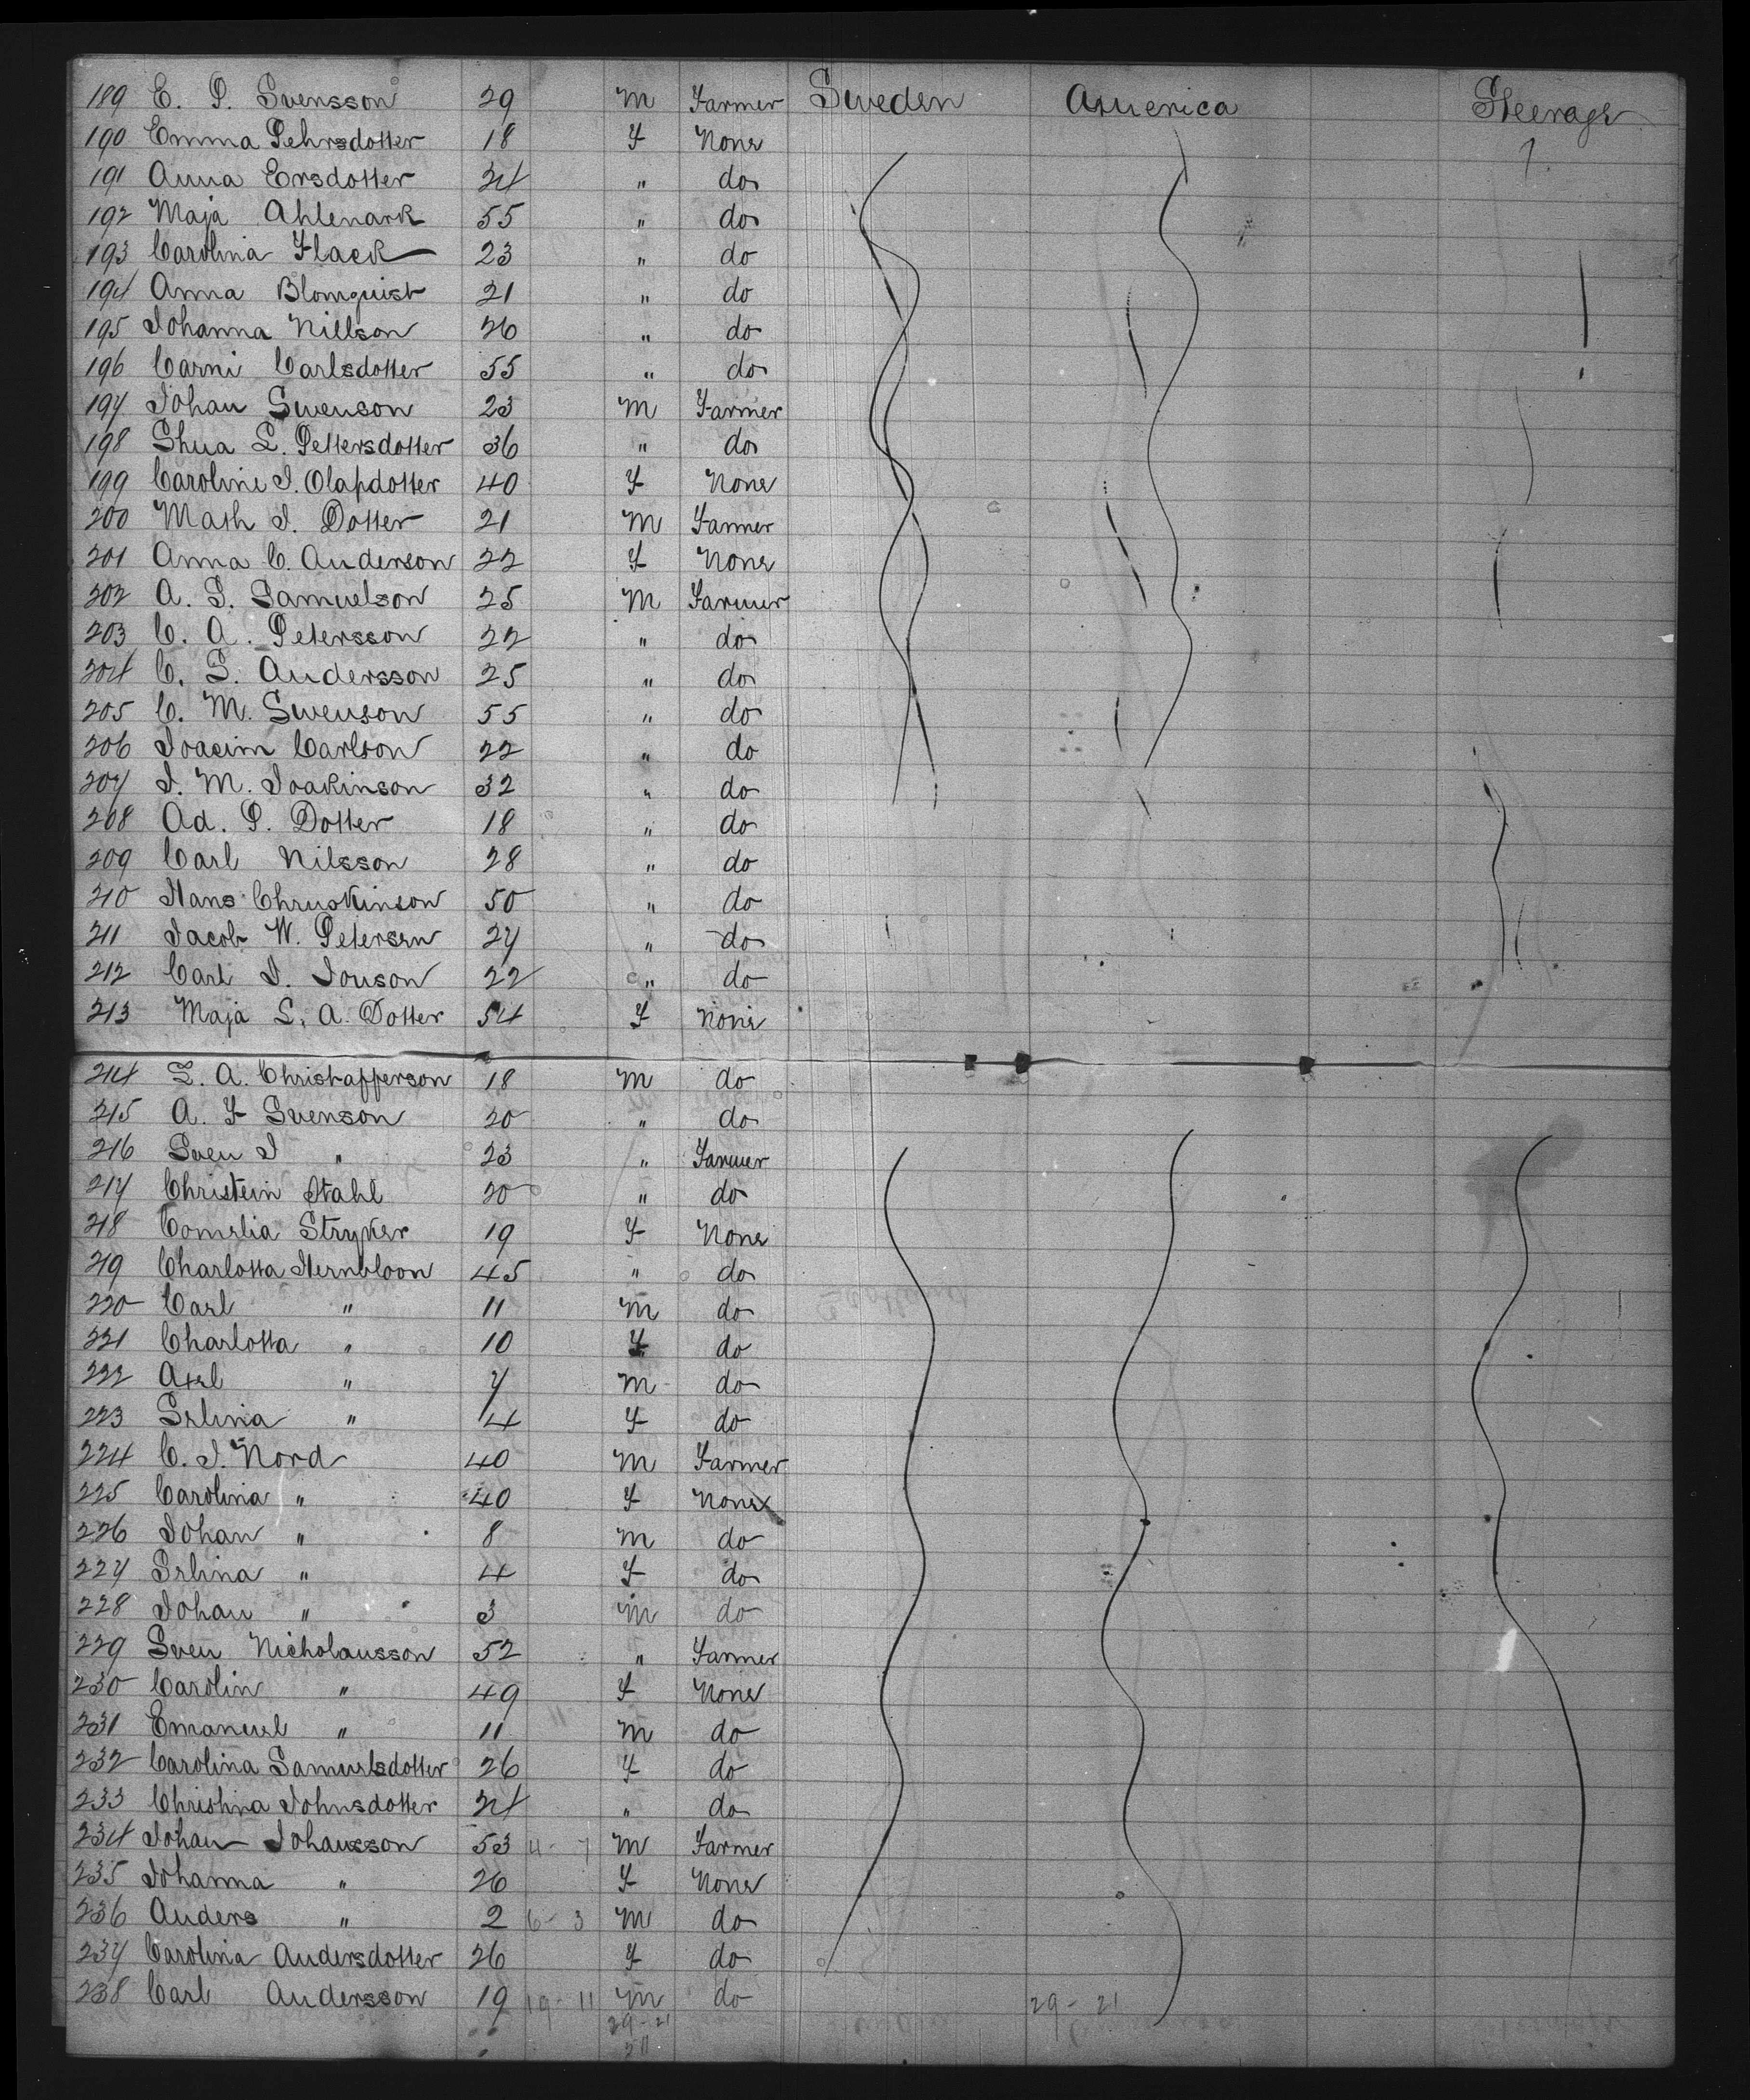 189 E. P. Svensson 29 M Farmer Sweden America Steerage
190 Emma Pehrsdotter 18 F None
191 Anna Ersdotter 24 " do
192 Maja Ahlenark 55 " do
193 Carolina Flack 23 " do
194 Anna Blomquist 21 " do
195 Johanna Nillson 26 " do
196 Carni Carlsdotter 55 " do
197 Johan Swenson 23 M Farmer
198 Shua L. Pettersdotter 36 " do
199 Caroline J. Olafdotter 40 F None
200 Math J. Dotter 21 M Farmer
201 Anna C. Anderson 22 F None
202 A. P. Samuelson 25 M Farmer
203 C. A. Petersson 22 " do
204 C. S. Andersson 25 " do
205 C. M. Swenson 55 " do
206 Joacim Carlson 22 " do
207 J. M. Joakinson 32 " do
208 Ad. P. Dotter 18 " do
209 Carl Nilsson 28 " do
210 Hans Christinson 50 " do
211 Jacob W. Petersen 27 " do
212 Carl J. Jonson 22 " do
213 Maja L. A. Dotter 54 F None
214 L. A. Christafferson 18 M do
215 A. F Svenson 20 " do
216 Sven J " 23 " Farmer
217 Christein Stahl 20 " do
218 Cornelia Stryker 19 F None
219 Charlotta Hernbloon 45 " do
220 Carl " 11 M do
221 Charlotta " 10 F do
222 Axel " 7 M do
223 Selina " 4 F do
224 C. J. Nord 40 M Farmer
225 Carolina " 40 F None
226 Johan " 8 M do
227 Selina " 4 F do
228 Johan " 3 M do
229 Sven Nicholausson 52 " Farmer
230 Carolin " 49 F None
231 Emanuel " 11 M do
232 Carolina Samuelsdotter 26 F do
233 Christina Johnsdotter 24 " do
234 Johan Johansson 53 4 - 7 M Farmer
235 Johanna " 26 F None
236 Anders " 2 6 - 3 M do
237 Carolina Andersdotter 26 F do
238 Carl Andersson 19 19 - 11 M do 29 - 21
29 - 21
50